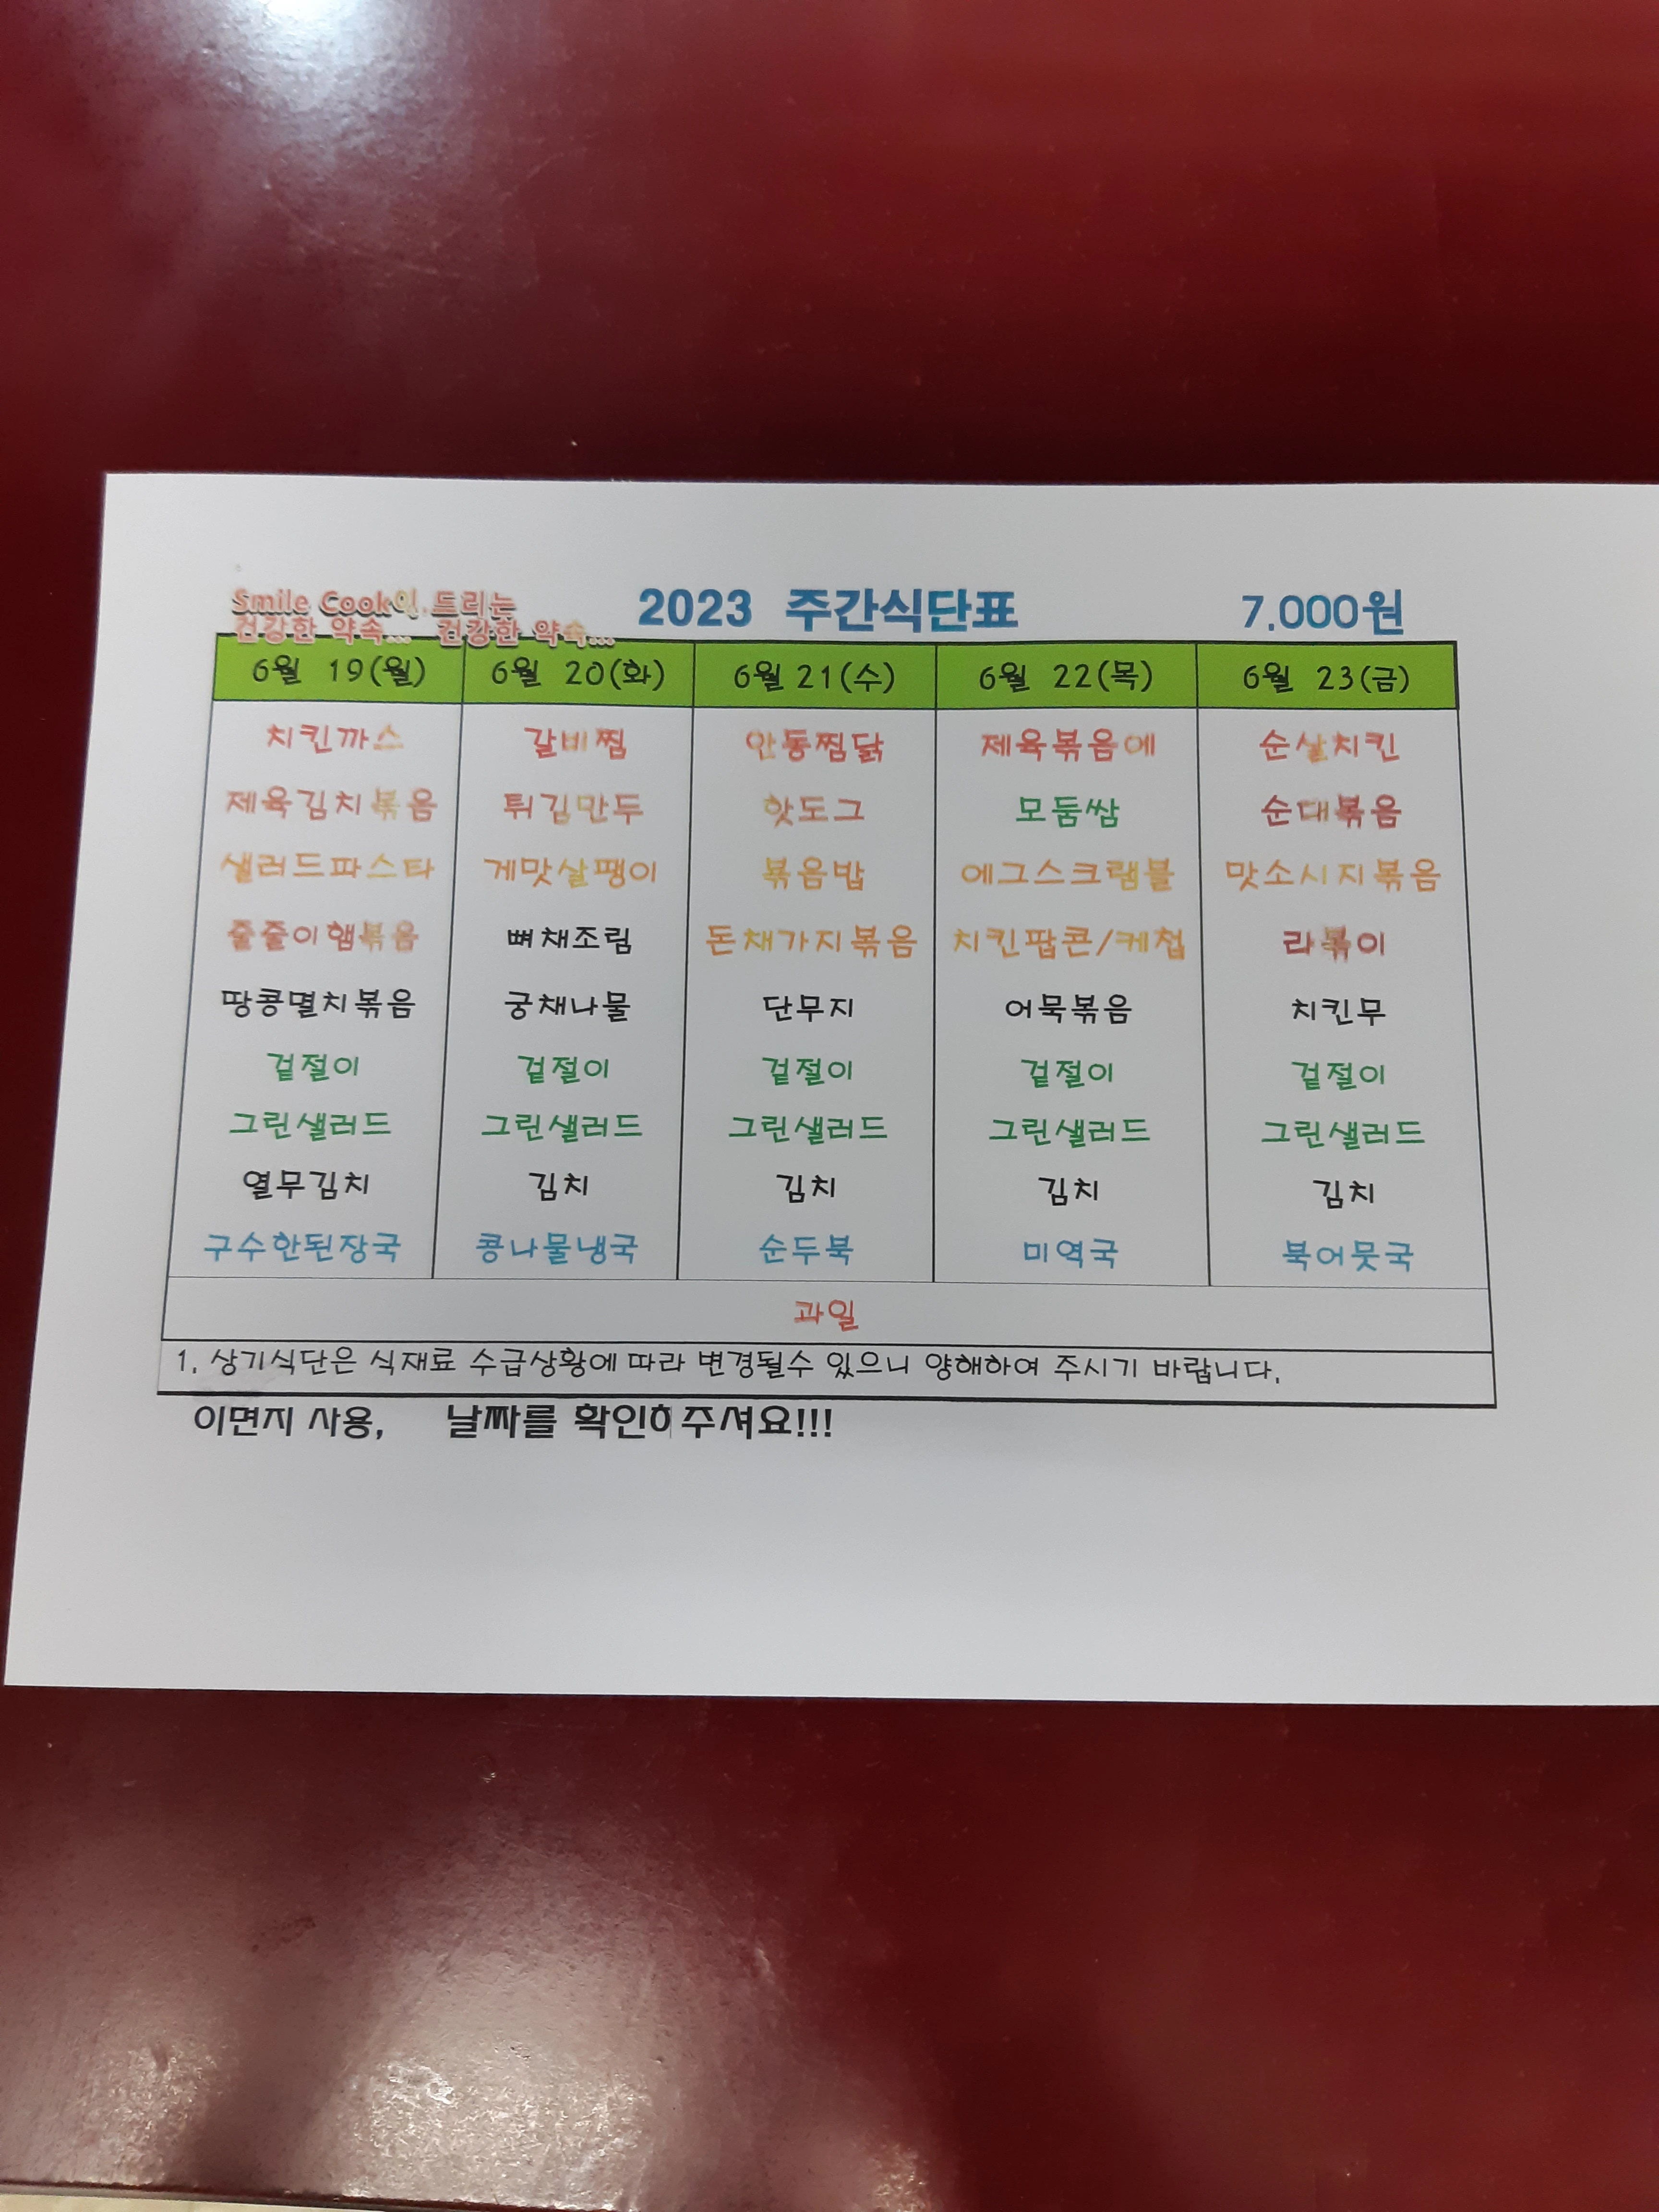 Smile Cook이 드리는
건강한 약속... 건강한 약속...
2023 주간식단표 7.000원
6월 19(월) 6월 20(화) 6월 21(수) 6월 22(목) 6월 23(금)
치킨까스 갈비찜 안동찜닭 제육볶음에 순살치킨
제육김치볶음 튀김만두 핫도그 모둠쌈 순대볶음
샐러드파스타 게맛살팽이 볶음밥 에그스크램블 맛소시지볶음
줄줄이햄볶음 뼈채조림 돈채가지볶음 치킨팝콘/케첩 라볶이
땅콩멸치볶음 궁채나물 단무지 어묵볶음 치킨무
겉절이 겉절이 겉절이 겉절이 겉절이
그린샐러드 그린샐러드 그린샐러드 그린샐러드 그린샐러드
열무김치 김치 김치 김치 김치
구수한된장국 콩나물냉국 순두북 미역국 북어뭇국
과일
1. 상기식단은 식재료 수급상황에 따라 변경될수 있으니 양해하여 주시기 바랍니다.
이면지 사용, 날짜를 주셔요!!!